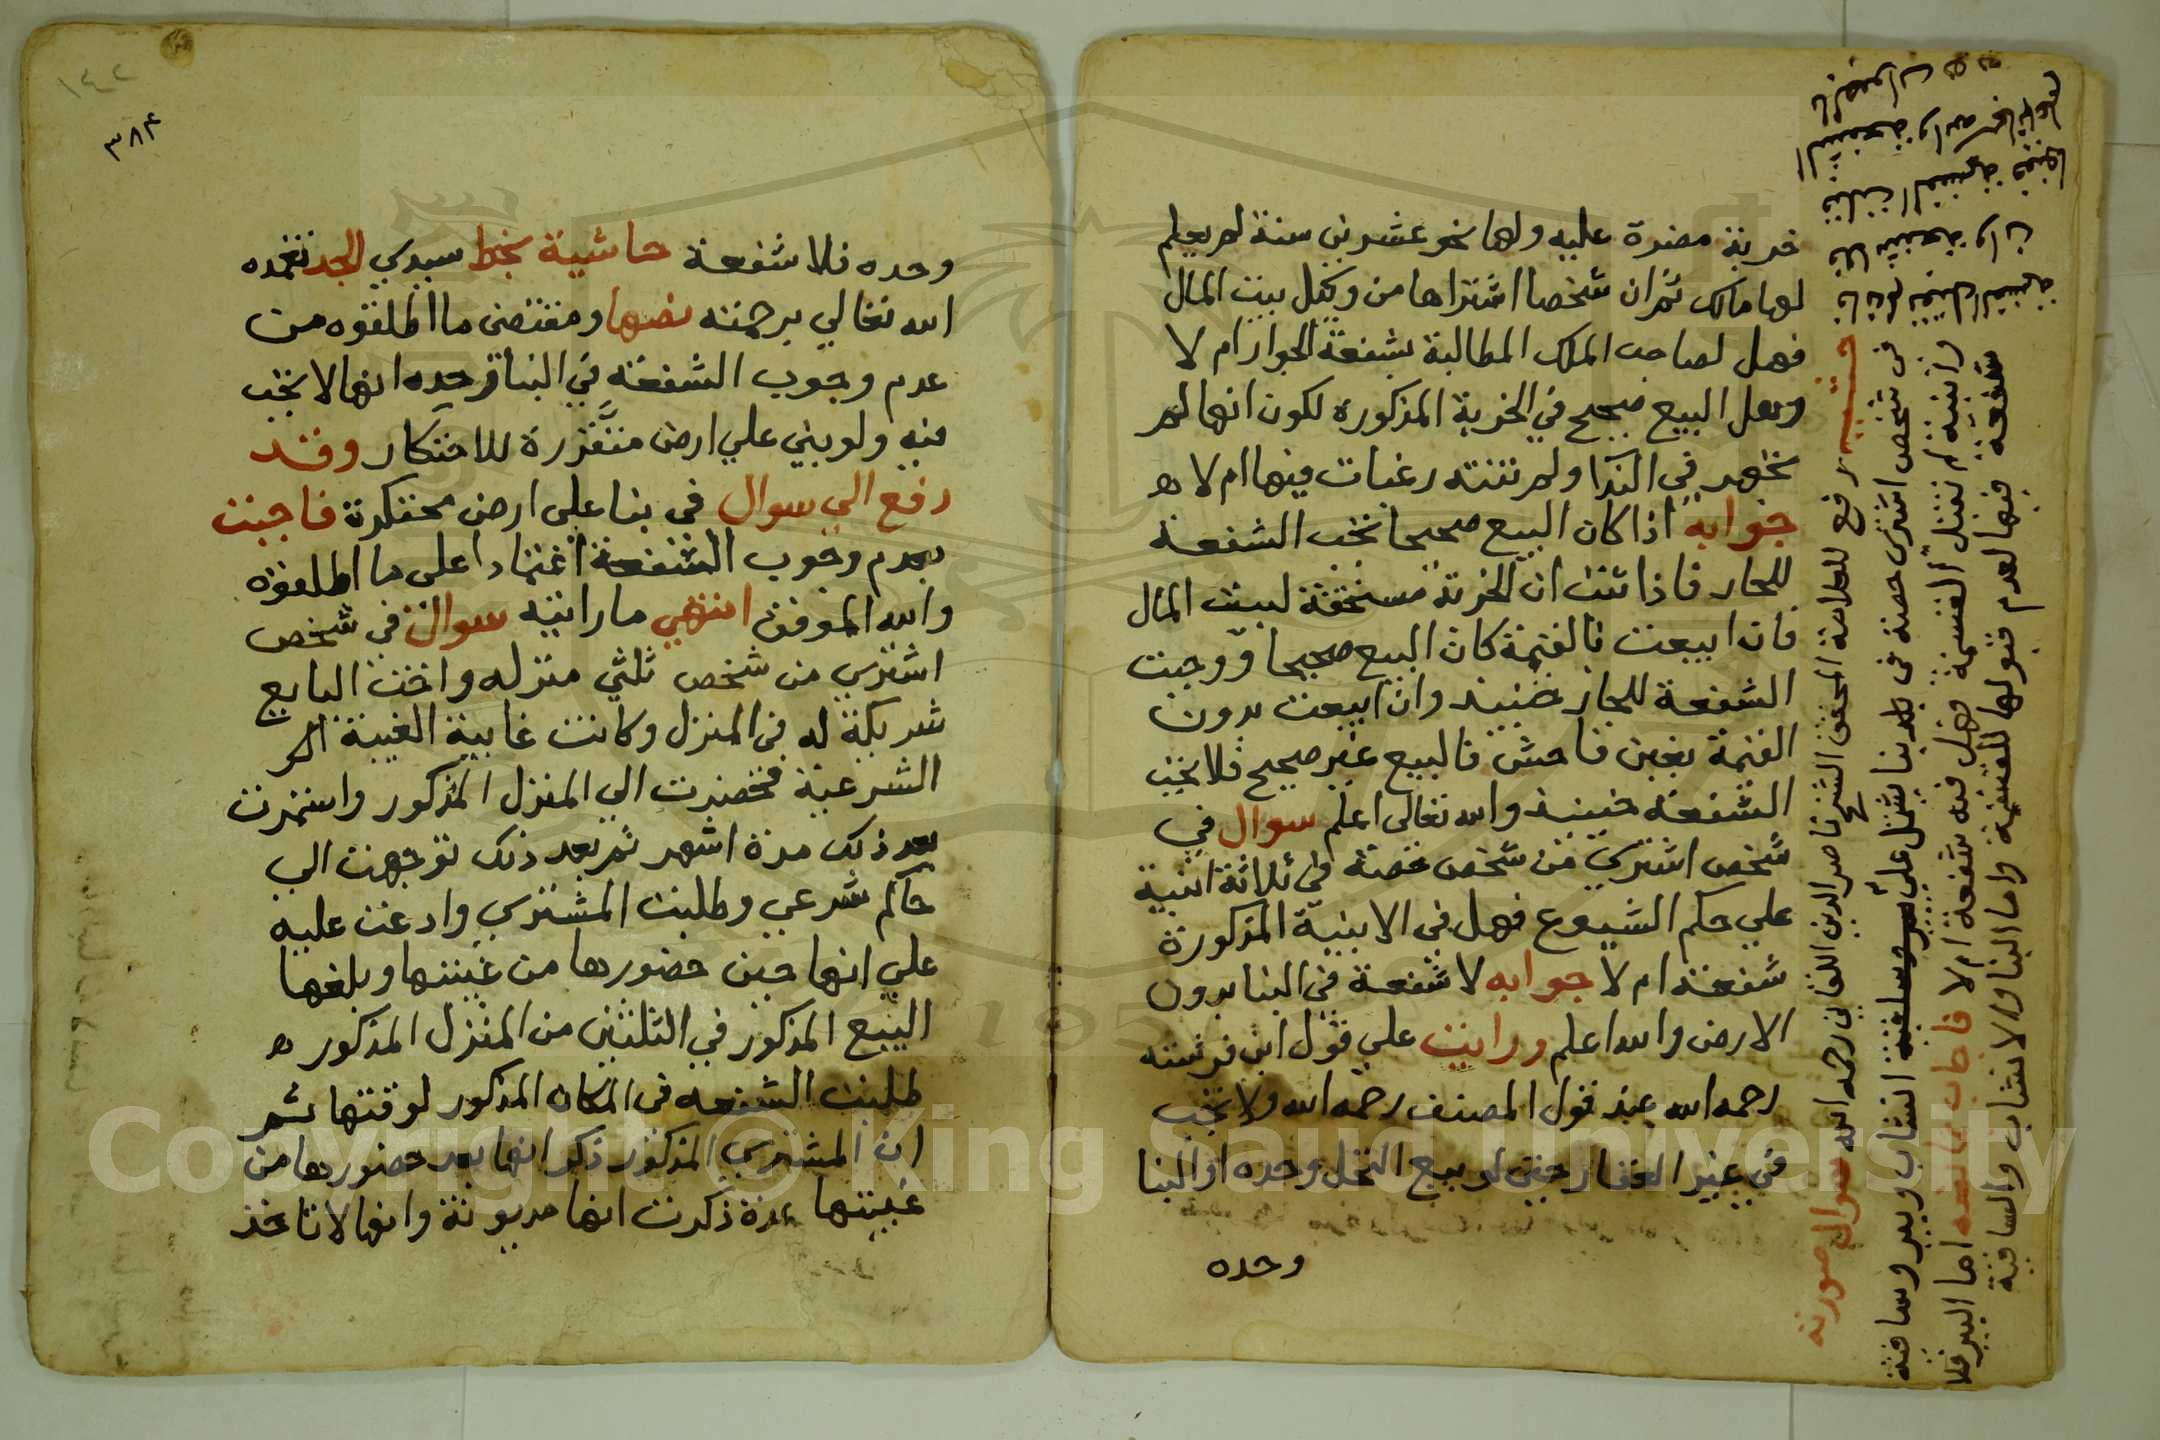 خربة مضرة عليه ولها نحو عشرين سنة لم يعلم
لها مالك ثم ان شخصا اشتراها من وكيل بيت المال
فهل لصاحب الملك المطالبة بشفعة الجوار ام لا
وهل البيع صحيح في الخربة المذكورة لكون انها لم
تشهر في الندا ولم تنته رغبات فيها ام لا
جوابه اذا كان البيع صحيحا تجب الشفعة
للجار فاذا ثبت ان الخربة مستحقة لبيت المال
فان ابيعت بالقيمة كان البيع صحيحا ووجبت
الشفعة للجار حينيذ وان ابيعت بدون
القيمة بغبن فاحش فالبيع غير صحيح فلا تجب
الشفعة حينيذ والله تعالى اعلم سوال في
شخص اشتري من شخص حصة في ثلاثة ابنية
علي حكم الشيوع فهل في الابنية المذكورة
شفعة ام لا جوابه لا شفعة في البنا بدون
الارض والله اعلم ورايت علي قول ابن فرشته
رحمه الله عند قول المصنف رحمه الله ولا تجب
في غير العقار حتى لو بيع النخل وحده او البنا
وحده
حاشية رفع للعلامة المحقق الشيخ ناصر الدين اللقاني رحمه الله سوال صورته
في شخص اشترى حصة في بلد بنا يشتمل علي انشاب وبير وساقية
وابنية لم تقبل القسمة فهل فيه شفعة ام لا فاجاب بما نصه اما البير فلا
شفعة فيها لعدم قبولها للقسمة واما البنا والانشاب والساقية
فان لم يقبل القسمة
فلا شفعة وان
قبلت القسمة ففيها
الشفعة والله تعالى اعلم
بالصواب
٣٨٤
١٤٢
وحده فلا شفعة حاشية بخط سيدي الجد تغمده
الله تعالي برحمته نصها ومقتضى ما اطلقوه من
عدم وجوب الشفعة في البنا وحده انها لا تجب
فيه ولو بني علي ارض متقررة للاحتكار وقد
رفع الي سوال في بنا على ارض محتكرة فاجبت
بعدم وجوب الشفعة اعتمادا على ما اطلقوه
والله الموفق انتهي ما رايته سوال في شخص
اشتري من شخص ثلثي منزله واخت البايع
شريكة له في المنزل وكانت غايبة الغيبة
الشرعية فحضرت الي المنزل المذكور واستمرت
بعد ذلك مدة اشهر ثم بعد ذلك توجهت الي
حاكم شرعي وطلبت المشتري وادعت عليه
علي انها حين حضورها من غيبتها وبلغها
البيع المذكور في الثلثين من المنزل المذكور
طلبت الشفعه في المكان المذكور لوقتها ثم
ان المشتري المذكور ذكر انها بعد حضورها من
غيبتها مدة ذكرت انها مديونة وانها لا تاخذ
Copyright © King Saud University